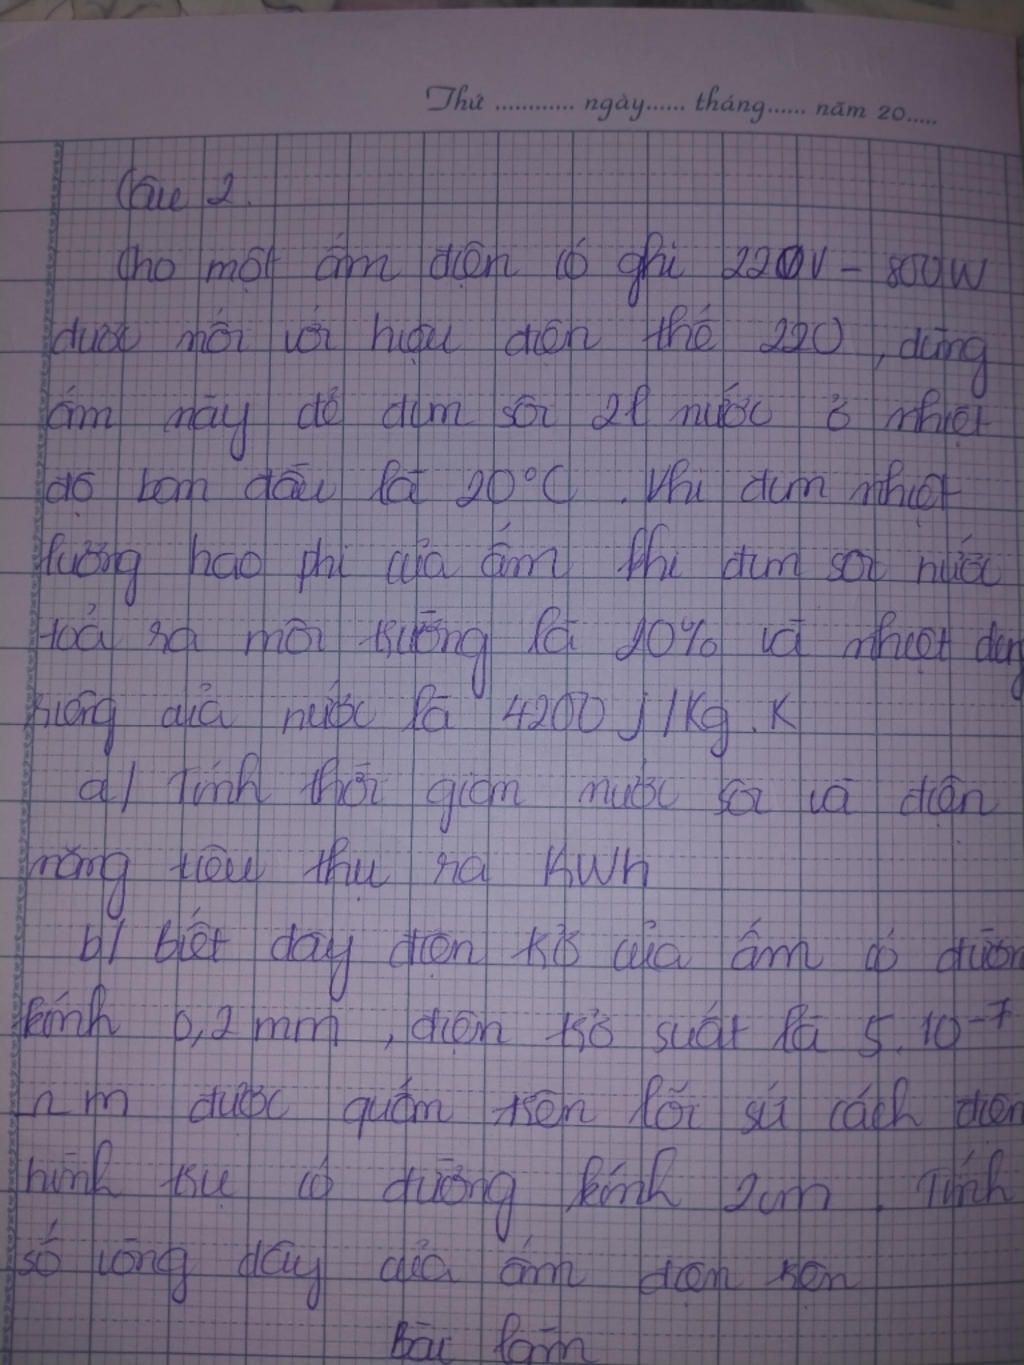 Thứ ............ ngày...... tháng...... năm 20.....
Câu 2.
Cho một ấm điện có ghi 220V - 800W
được mới với hiệu điện thế 220, dùng
ấm này để đun sôi 2l nước ở nhiệt
độ ban đầu là 20°C. Khi đun nhiệt
lượng hao phí của ấm khi đun sôi nước
toả ra môi trường là 20% và nhiệt dun
riêng của nước là 4200 J/Kg.K
a/ Tính thời gian nước sôi và điện
năng tiêu thụ ra KWh
b/ biết dây điện trở của ấm có đườn
kính 0,2mm, điện trở suất là 5.10⁻⁷
Ωm được quấn trên lõi sứ cách điện
hình trụ có đường kính 2cm. Tính
số vòng dây của ấm điện trên
Bài làm